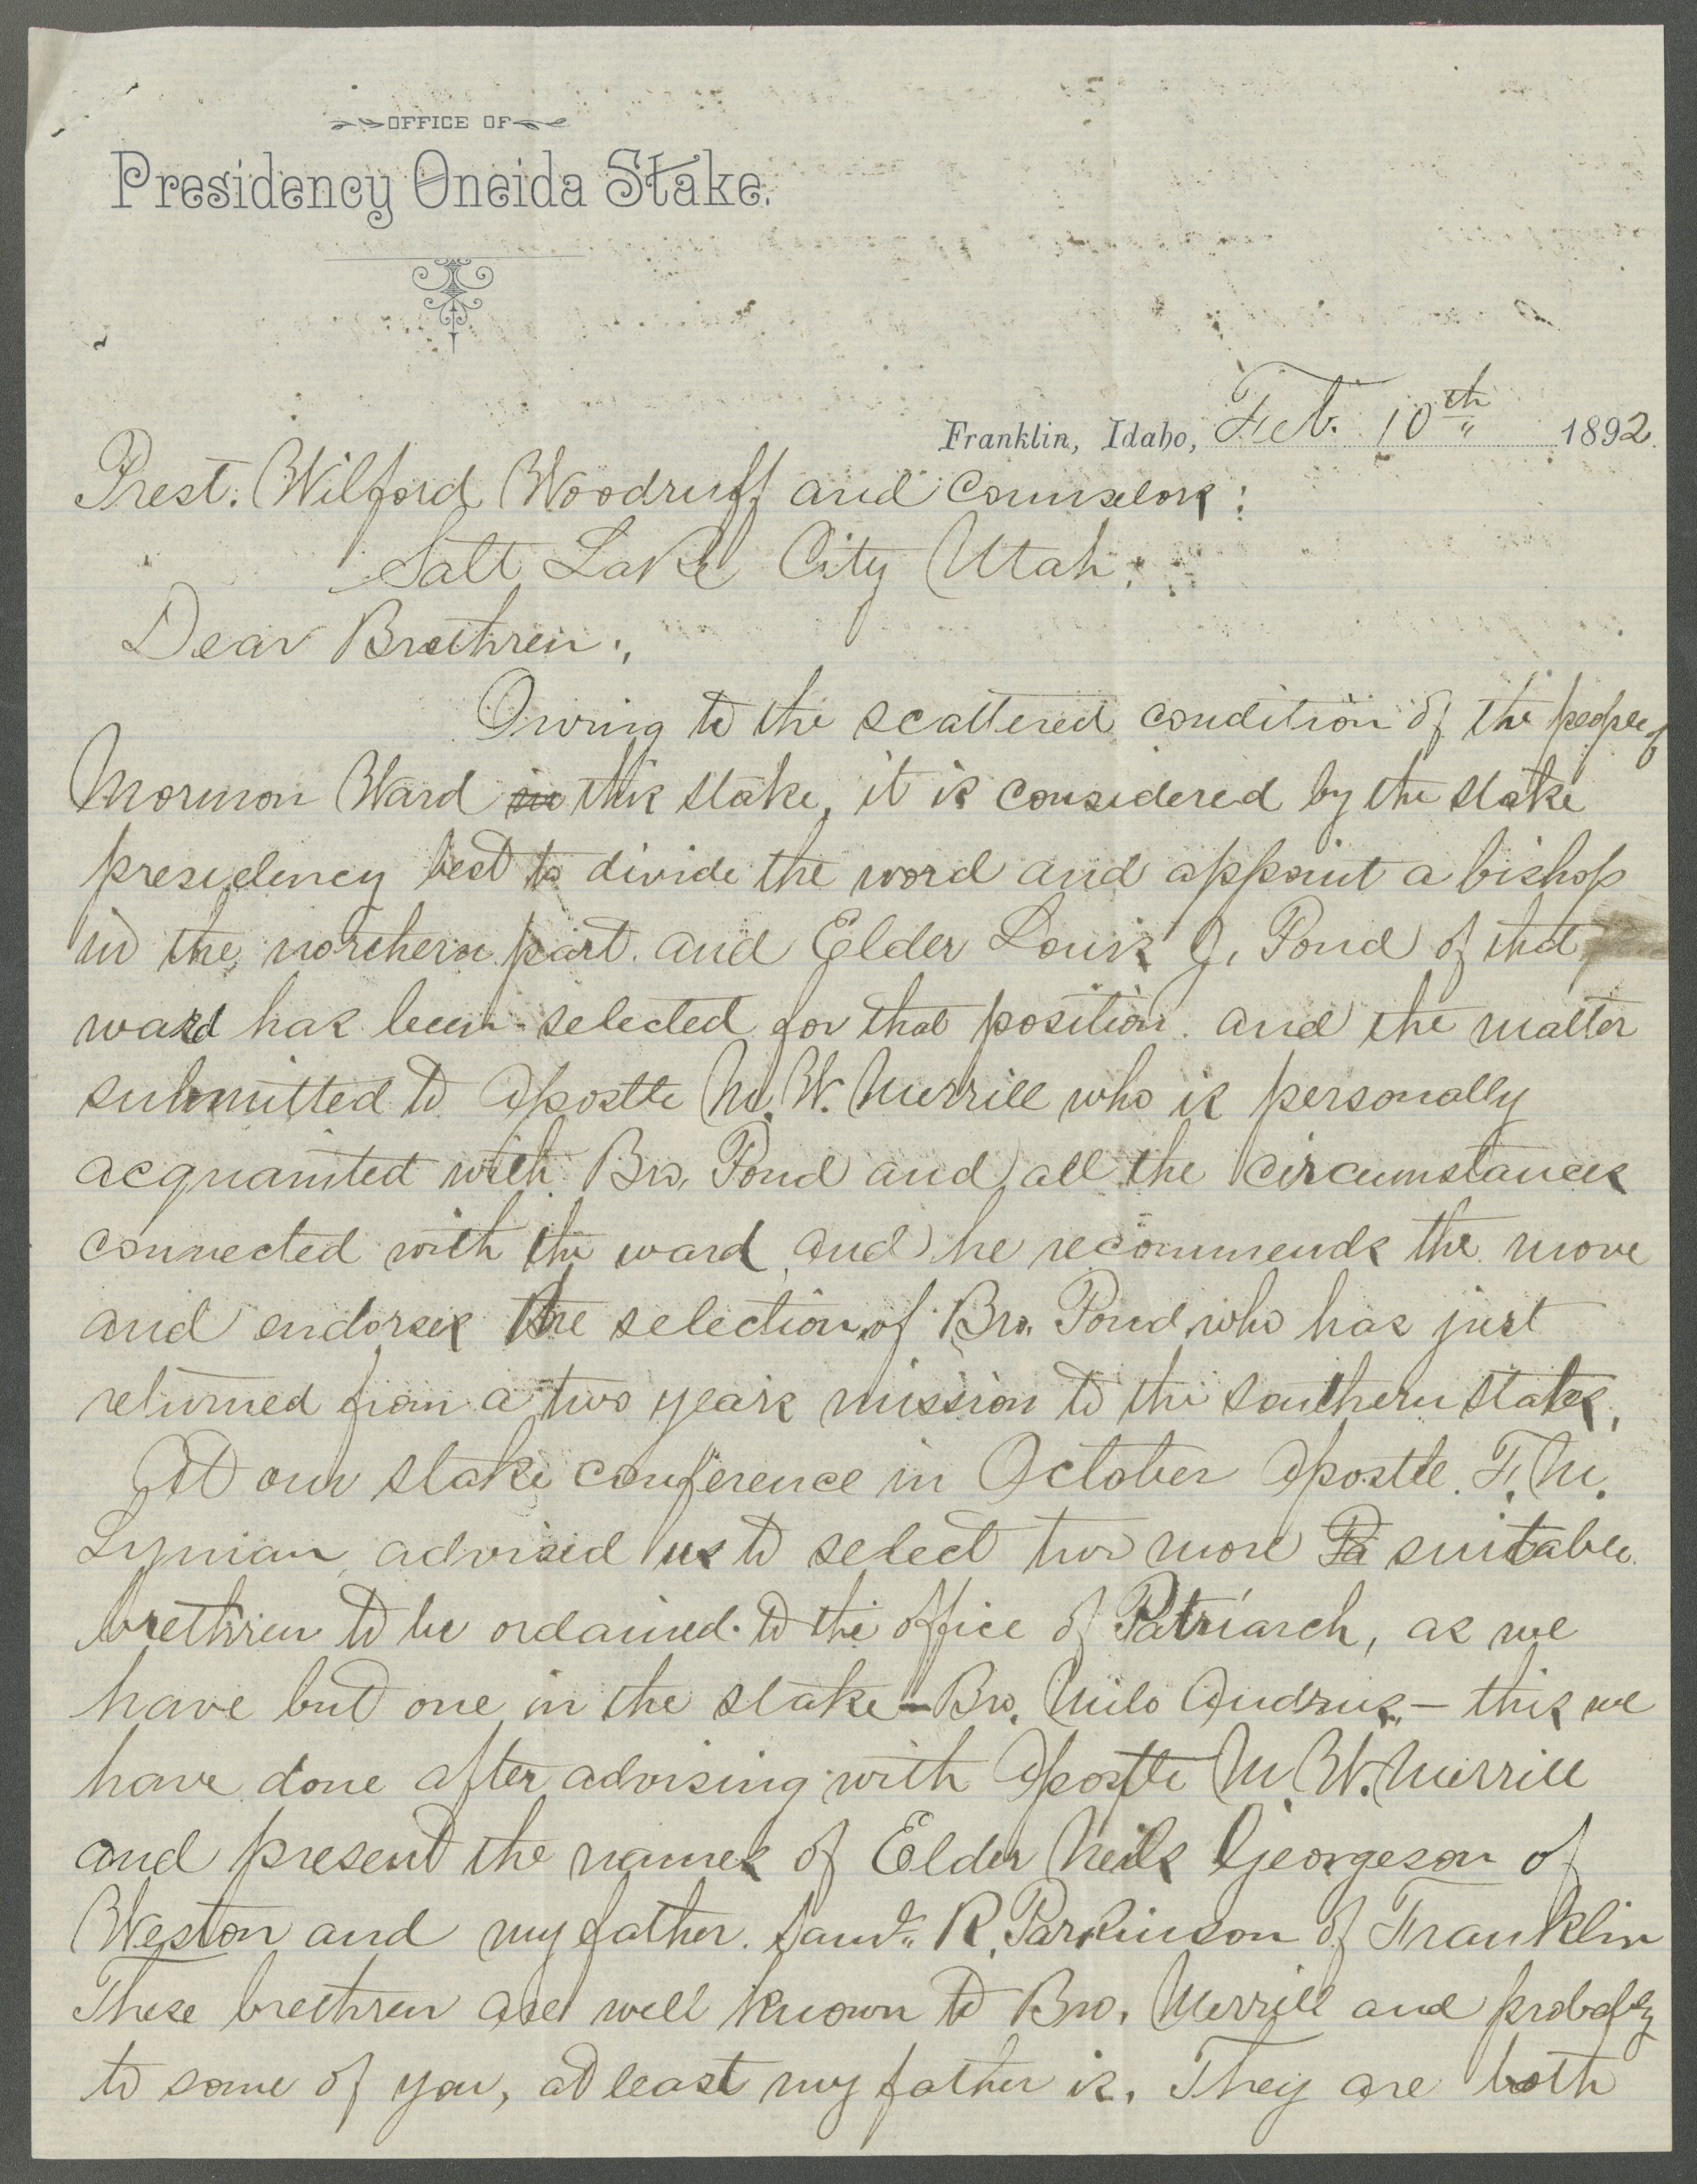 OFFICE OF
Presidency Oneida Stake.
Franklin, Idaho, Feb. 10th 1892.
Prest. Wilford Woodruff and Counselors:
Salt Lake City Utah.
Dear Brethren:
Owing to the scattered condition of the people of
Mormon Ward in this stake, it is considered by the stake
presidency best to divide the word and appoint a bishop
in the northern part. and Elder Louis J. Pond of that
ward has been selected for that position. and the matter
submitted to Apostle M. W. Merrill who is personally
acquainted with Bro. Pond and all the circumstances
connected with the ward, and he recommends the move
and endorses the selection of Bro. Pond, who has just
returned from a two years mission to the southern states.
At our stake conference in October Apostle. F. M.
Lyman advised us to select two more Pa suitable
brethren to be ordained to the office of Patriarch, as we
have but one in the stake - Bro. Milo Andrus, - this we
have done after advising with Apostle M. W. Merrill
and present the names of Elder Neils Georgeson of
Weston and my father. Saml. R. Parkinson of Franklin
These brethren are well known to Bro. Merrill and probably
to some of you, at least my father is. They are both